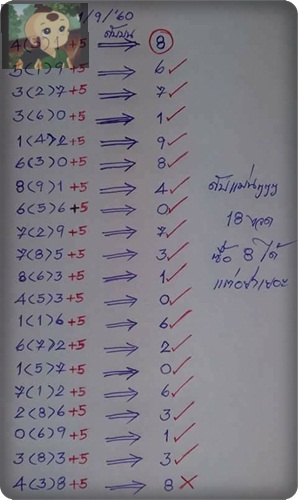 1/9/'60
ดับบน
4(3)1+5 ⟹ 8
5(1)9+5 ⟹ 6✓
3(2)7+5 ⟹ 7✓
3(6)0+5 ⟹ 1✓
1(4)2+5 ⟹ 9✓
6(3)0+5 ⟹ 8✓
8(9)1+5 ⟹ 4✓
6(5)6+5 ⟹ 0✓
7(2)9+5 ⟹ 7✓
7(8)5+5 ⟹ 3✓
8(6)3+5 ⟹ 1✓
4(5)3+5 ⟹ 0✓
1(1)6+5 ⟹ 6✓
6(7)2+5 ⟹ 2✓
1(5)7+5 ⟹ 0✓
7(1)2+5 ⟹ 6✓
2(8)6+5 ⟹ 3✓
0(6)9+5 ⟹ 1✓
3(8)3+5 ⟹ 3✓
4(3)8+5 ⟹ 8✗
ดับแม่นๆๆๆ
18 งวด
ซื้อ 8 ได้
แต่อย่าเยอะ